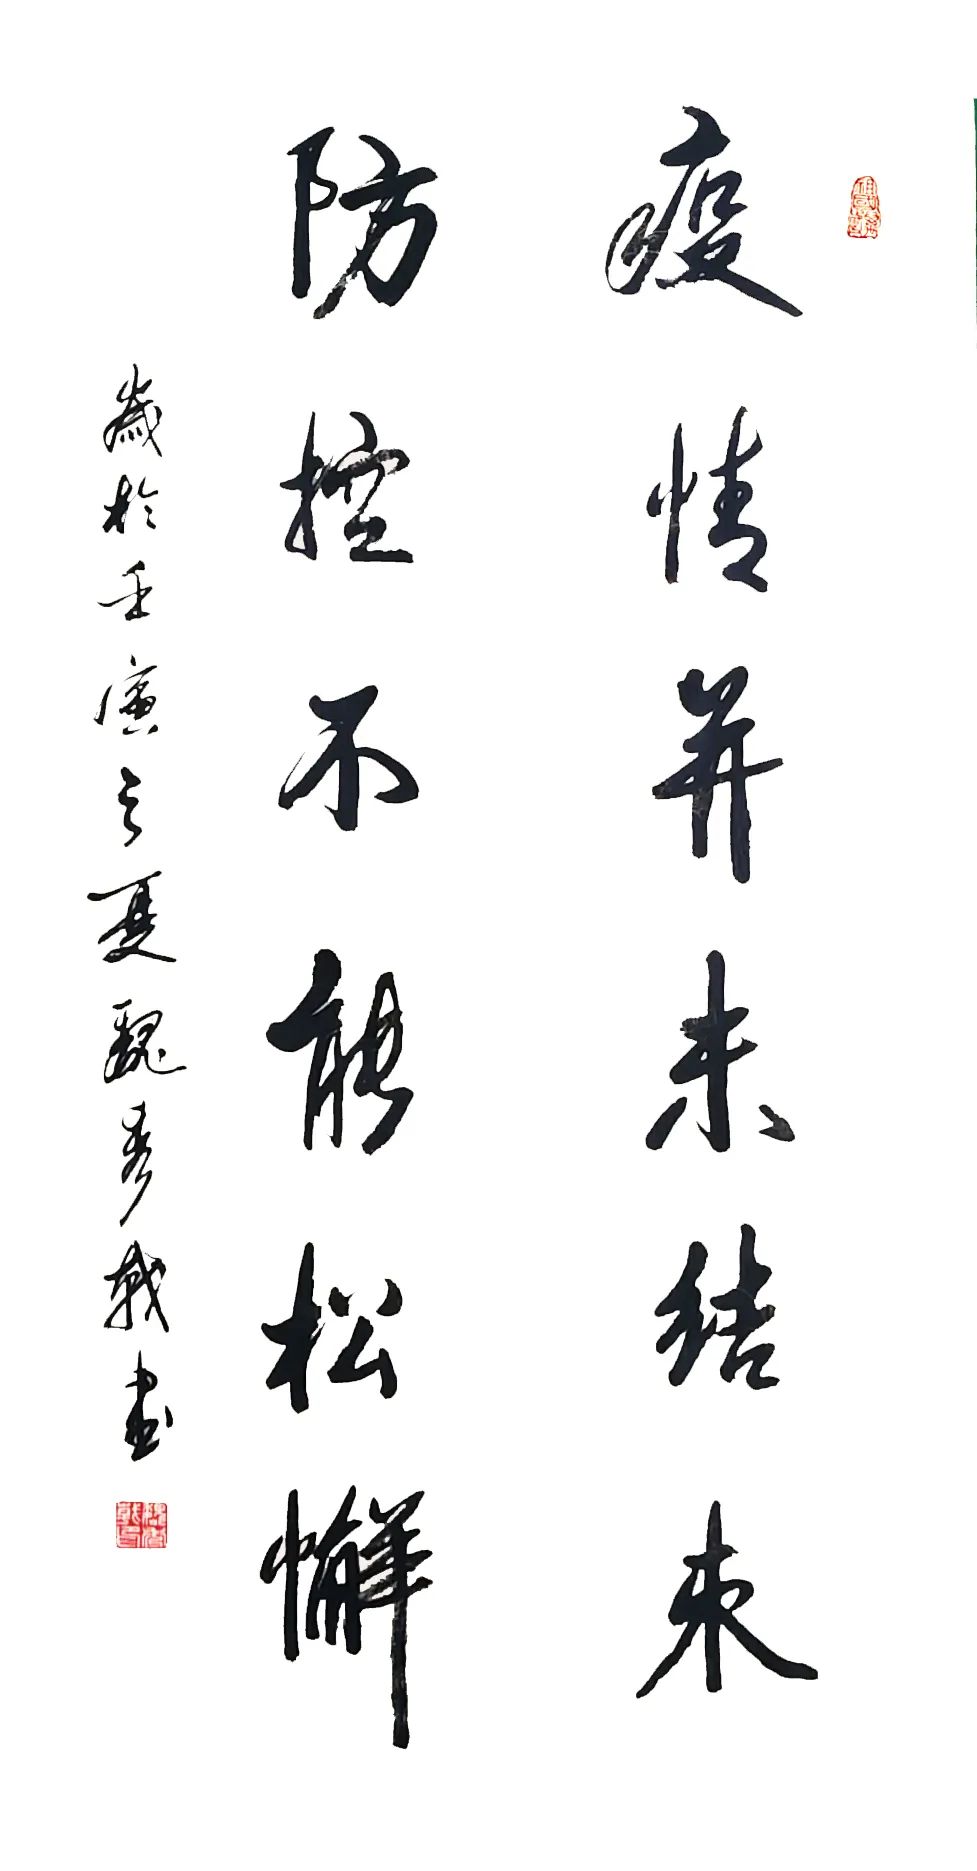 疫情并未结束
防控不能松懈
岁於壬寅之夏魏秀战书